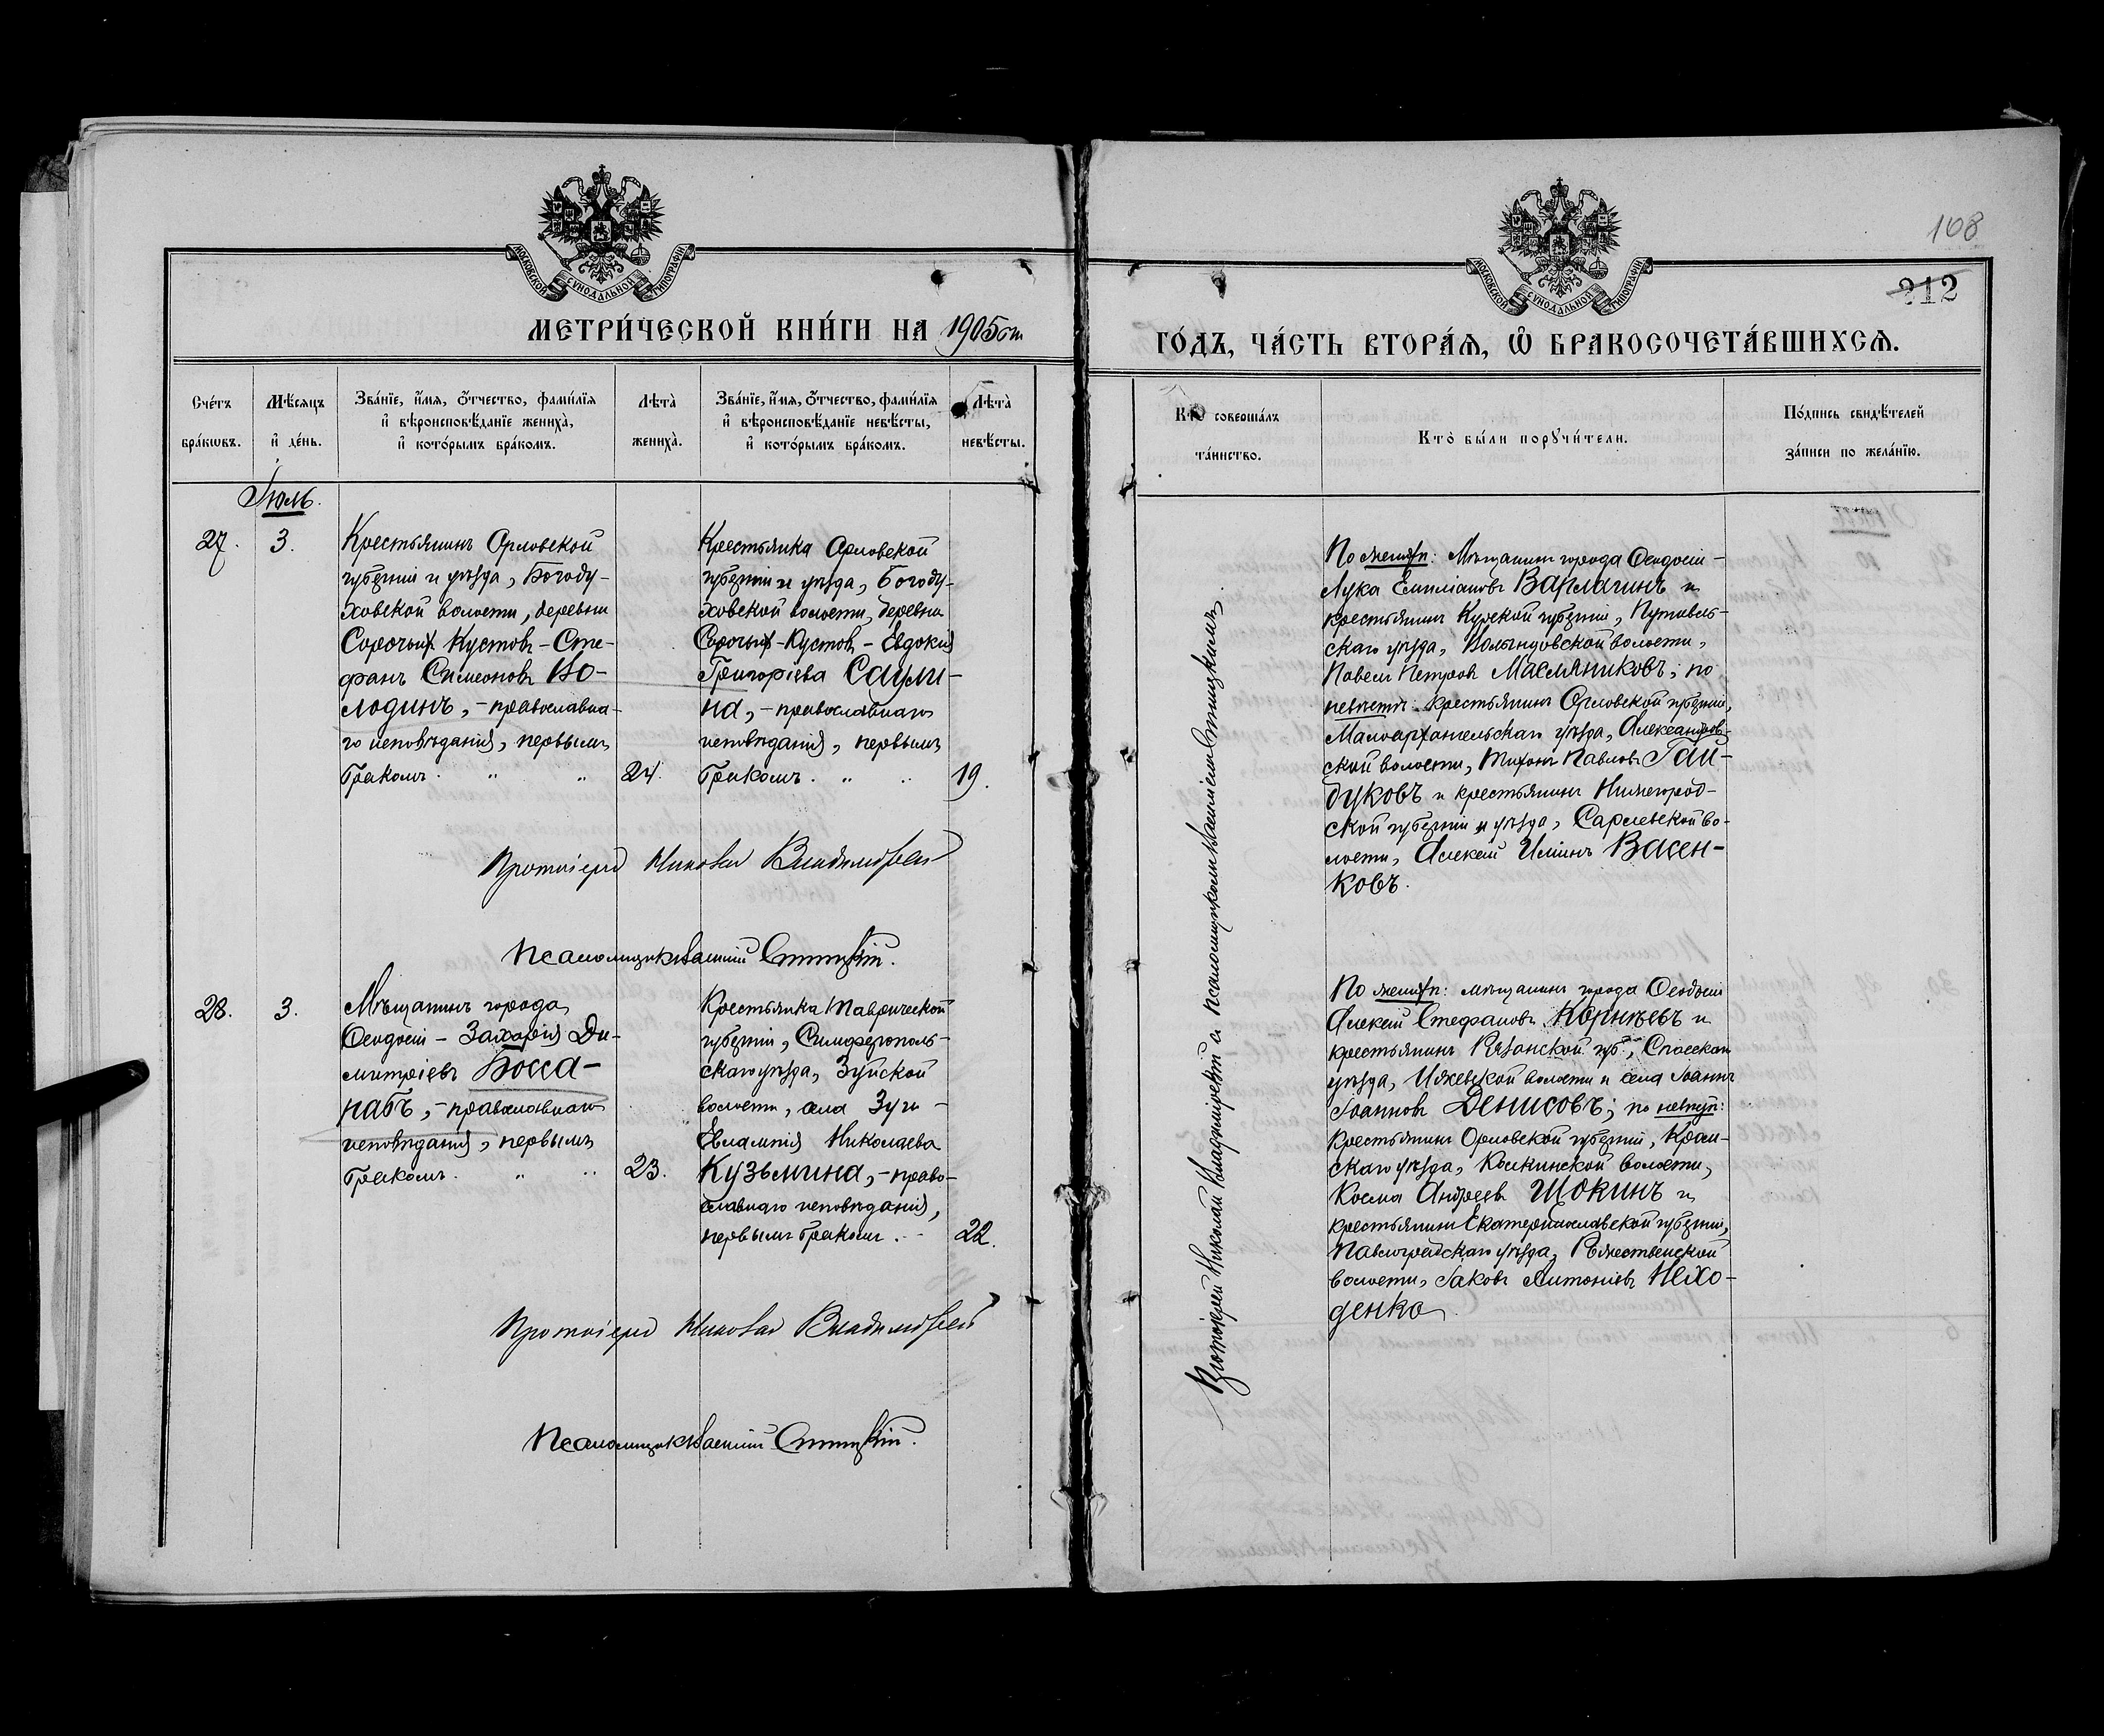 МОСКОВСКОЙ СѴНОДАЛЬНОЙ ТИПОГРАФІИ
МЕТРИ́ЧЕСКОЙ КНИ́ГИ НА 1905 от
Сче́тъ бра́ковъ.
Мѣ́сяцъ и҆ де́нь.
Зва́нїе, и҆́мя, ѻ҆́тчество, фами́лїя
и҆ вѣроисповѣ́данїе жениха̀,
и҆ кото́рымъ бра́комъ.
Лѣ́та̀ жениха̀.
Зва́нїе, и҆́мя, ѻ҆́тчество, фами́лїя
и҆ вѣроисповѣ́данїе невѣ́сты,
и҆ кото́рымъ бра́комъ.
Лѣ́та̀ невѣ́сты.
Іюль.
27.
3.
Крестьянинъ Орловской
губерніи и уѣзда, Богоду-
ховской волости, деревни
Сорочьихъ Кустовъ – Сте-
фанъ Симеоновъ Во-
лодинъ, – православна-
го исповѣданія, первымъ
бракомъ. " "
24.
Крестьянка Орловской
губерніи и уѣзда, Богоду-
ховской волости, деревни
Сорочьихъ-Кустовъ – Евдокія
Григоріева Саули-
на, – православнаго
исповѣданія, первымъ
бракомъ. " "
19.
Протоіерей Николай Владиміровъ
Псаломщикъ Василій Стицкій.
28.
3.
Мѣщанинъ города
Ѳеодосіи – Захарія Ди-
митріевъ Босса-
набъ, – православнаго
исповѣданія, первымъ
бракомъ. " "
23.
Крестьянка Таврической
губерніи, Симферополь-
скаго уѣзда, Зуйской
волости, села Зуи –
Евлампія Николаева
Кузьмина, – право-
славнаго исповѣданія,
первымъ бракомъ. "
22.
Протоіерей Николай Владиміровъ
Псаломщикъ Василій Стицкій.
108
212
МОСКОВСКОЙ СѴНОДАЛЬНОЙ ТИПОГРАФІИ
ГО́ДЪ, ЧА́СТЬ ВТОРА́Я, Ѡ҆ БРАКОСОЧЕТА́ВШИХСЯ.
Кто̀ соверша́лъ
та́инство.
Кто̀ бы́ли порꙋчи́тели.
По́дпись свидѣ́телей
за́писи по жела́нїю.
Протоіерей Николай Владиміровъ съ псаломщикомъ Василіемъ Стицкимъ.
По женихѣ: Мѣщанинъ города Ѳеодосіи –
Лука Емиліановъ Варлагинъ и
крестьянинъ Курской губерніи, Путивль-
скаго уѣзда, Волынцовской волости,
Павелъ Петровъ Масляниковъ; по
невѣстѣ: крестьянинъ Орловской губерніи,
Малоархангельскаго уѣзда, Александров-
ской волости, Тихонъ Павловъ Гай-
дуковъ и крестьянинъ Нижегород-
ской губерніи и уѣзда, Сарлевской во-
лости, Алексій Ильинъ Васен-
ковъ.
По женихѣ: мѣщанинъ города Ѳеодосіи
Алексій Стефановъ Корнѣевъ и
крестьянинъ Рязанской губ., Спасскаго
уѣзда, Ижевской волости и села Іоаннъ
Іоанновъ Денисовъ; по невѣстѣ:
крестьянинъ Орловской губерніи, Кром-
скаго уѣзда, Коскинской волости,
Косма Андреевъ Щокинъ и
крестьянинъ Екатеринославской губерніи,
Павлоградскаго уѣзда, Рожественской
волости, Іаковъ Антоніевъ Нехо-
денко